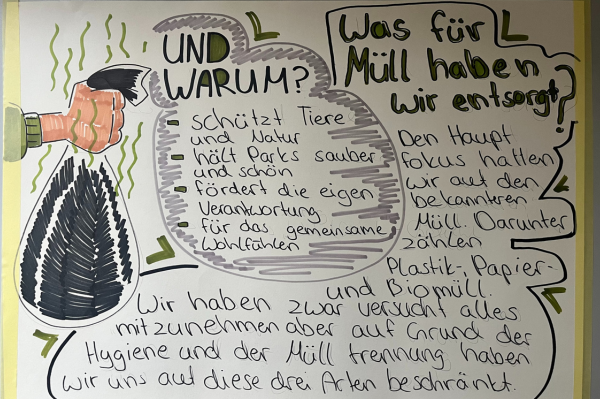 UND
WARUM?
- schützt Tiere
und Natur
- hält Parks sauber
und schön
- fördert die eigen
Verantwortung
- für das gemeinsame
Wohlfühlen
Was für
Müll haben
wir entsorgt?
Den Haupt
fokus hatten
wir auf den
bekannteren
Müll. Darunter
zählen
Plastik-, Papier-
und Biomüll.
Wir haben zwar versucht alles
mitzunehmen aber auf Grund der
Hygiene und der Müll trennung haben
wir uns auf diese drei Arten beschränkt.